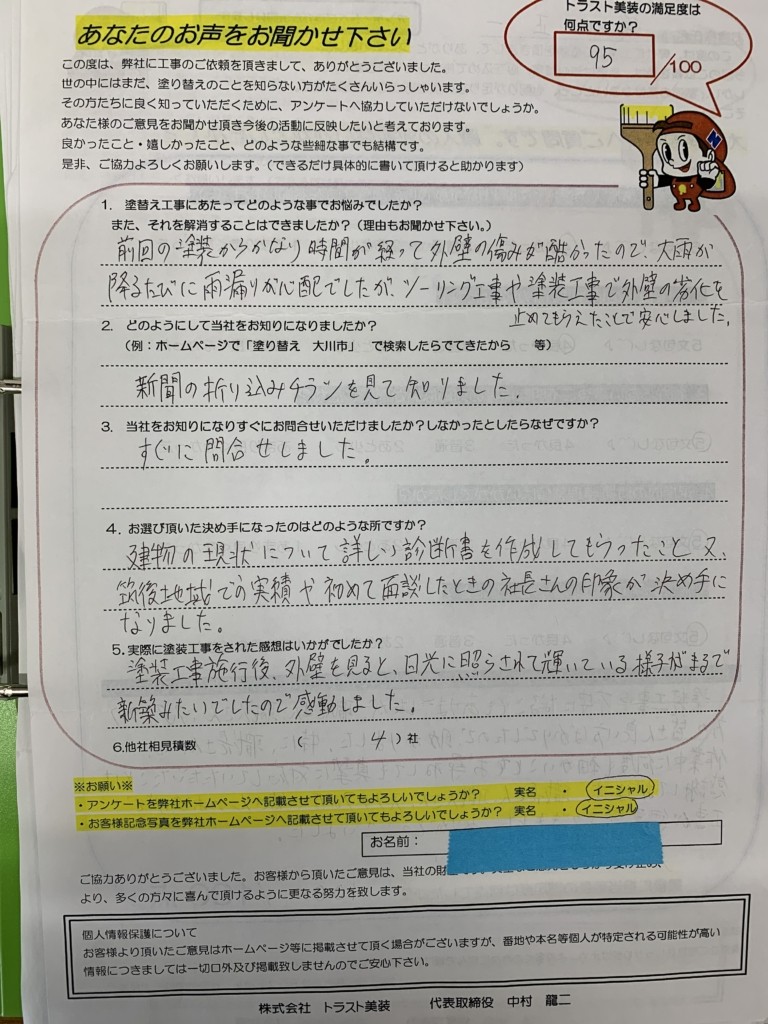 トラスト美装の満足度は
何点ですか?
95 /100
あなたのお声をお聞かせ下さい
この度は、弊社に工事のご依頼を頂きまして、ありがとうございました。
世の中にはまだ、塗り替えのことを知らない方がたくさんいらっしゃいます。
その方たちに良く知っていただくために、アンケートへ協力していただけないでしょうか。
あなた様のご意見をお聞かせ頂き今後の活動に反映したいと考えております。
良かったこと・嬉しかったこと、どのような些細な事でも結構です。
是非、ご協力よろしくお願いします。(できるだけ具体的に書いて頂けると助かります)
N
1. 塗替え工事にあたってどのような事でお悩みでしたか?
また、それを解消することはできましたか?(理由もお聞かせ下さい。)
前回の塗装からかなり時間が経って外壁の傷みが酷かったので、大雨が
降るたびに雨漏りが心配でしたが、シーリング工事や塗装工事で外壁の劣化を
止めてもらえたことで安心しました。
2. どのようにして当社をお知りになりましたか?
(例:ホームページで「塗り替え 大川市」 で検索したらでてきたから 等)
新聞の折り込みチラシを見て知りました。
3. 当社をお知りになりすぐにお問合せいただけましたか?しなかったとしたらなぜですか?
すぐに問合せしました。
4. お選び頂いた決め手になったのはどのような所ですか?
建物の現状について詳しい診断書を作成してもらったこと、又、
筑後地域での実績や初めて面談したときの社長さんの印象が決め手に
なりました。
5.実際に塗装工事をされた感想はいかがでしたか?
塗装工事施行後、外壁を見ると、日光に照らされて輝いている様子がまるで
新築みたいでしたので感動しました。
6.他社相見積数 ( 4 )社
※お願い※
・アンケートを弊社ホームページへ記載させて頂いてもよろしいでしょうか? 実名 ・ イニシャル
・お客様記念写真を弊社ホームページへ記載させて頂いてもよろしいでしょうか? 実名 ・ イニシャル
お名前:
ご協力ありがとうございました。お客様から頂いたご意見は、当社の財
より、多くの方々に喜んで頂けるように更なる努力を致します。
個人情報保護について
お客様より頂いたご意見はホームページ等に掲載させて頂く場合がございますが、番地や本名等個人が特定される可能性が高い
情報につきましては一切口外及び掲載致しませんのでご安心下さい。
株式会社 トラスト美装 代表取締役 中村 龍二